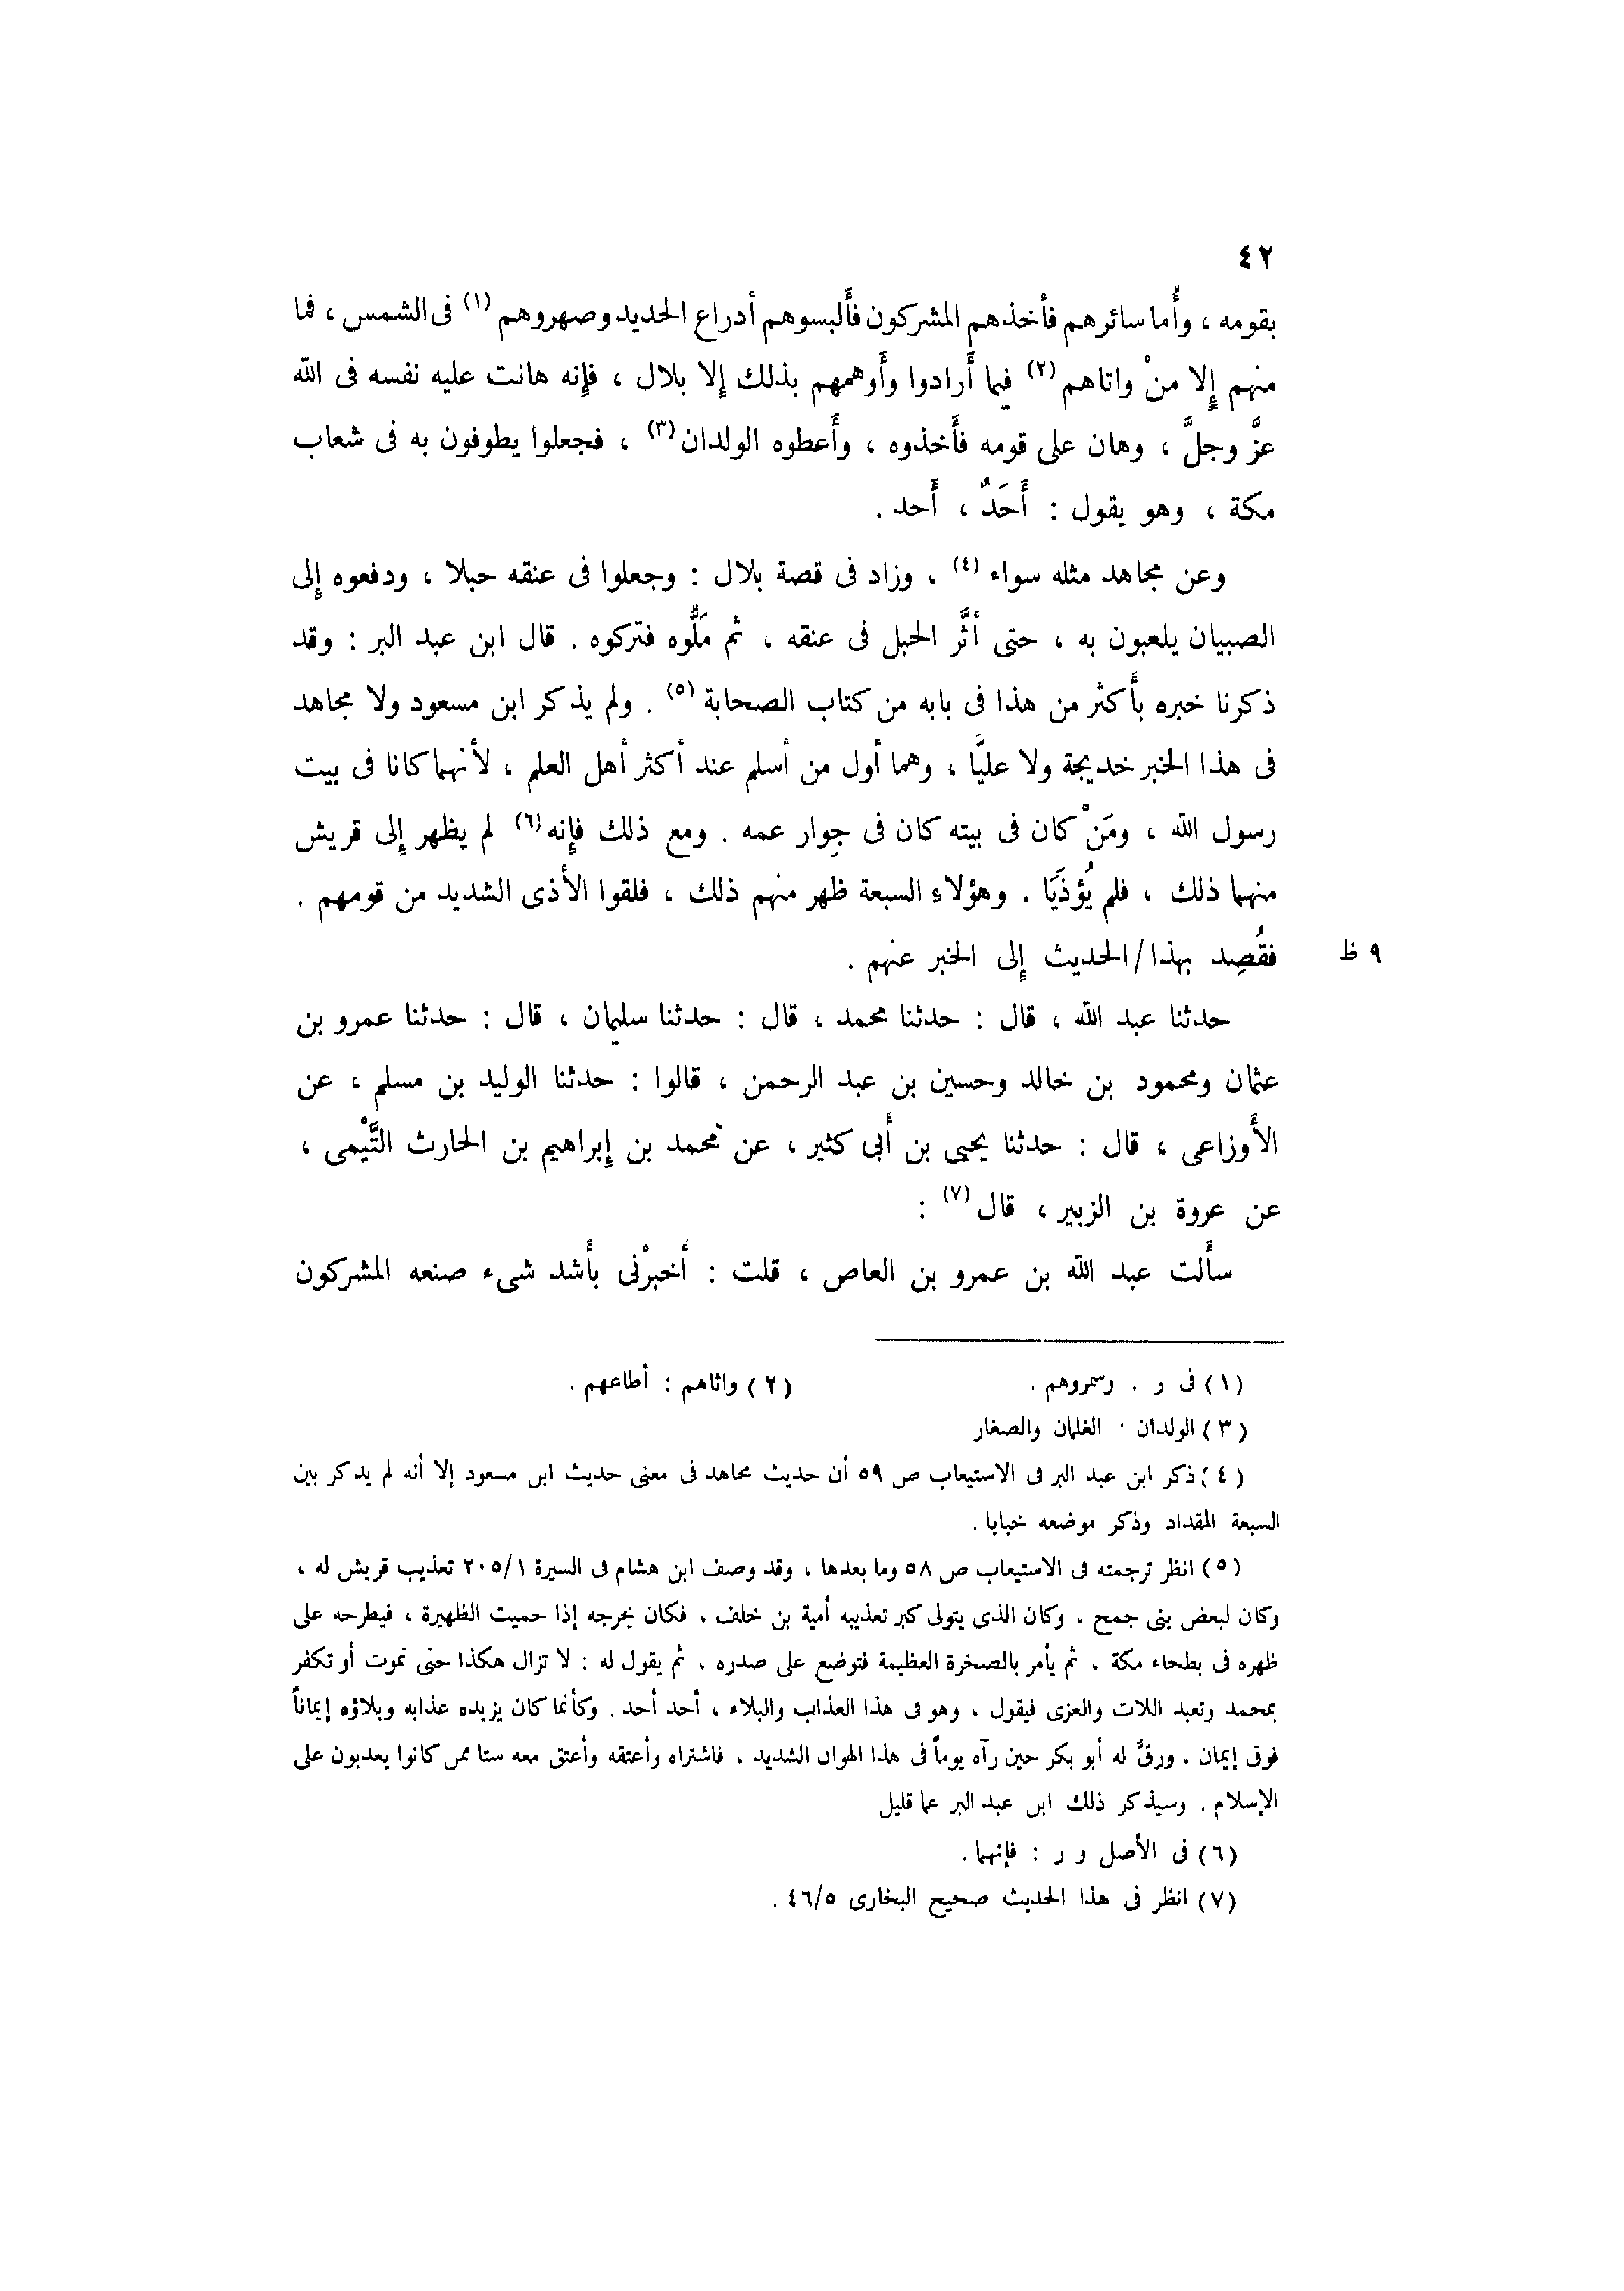 ٤٢
بقومه ، وأُما سائرهم فأخذهم المشركون فأَلبسوهم أدراع الحديد وصهروهم (١) فى الشمس ، فما
منهم إِلا منْ واتاهم (٢) فيما أَرادوا وأَوهمهم بذلك إِلا بلال ، فإِنه هانت عليه نفسه فى الله
عزَّ وجلَّ ، وهان على قومه فأَخذوه ، وأَعطوه الولدان (٣) ، فجعلوا يطوفون به فى شعاب
مكة ، وهو يقول : أَحَدٌ ، أَحد .
وعن مجاهد مثله سواء (٤) ، وزاد فى قصة بلال : وجعلوا فى عنقه حبلا ، ودفعوه إِلى
الصبيان يلعبون به ، حتى أثَّر الحبل فى عنقه ، ثم مَلُّوه فتركوه . قال ابن عبد البر : وقد
ذكرنا خبره بأَكثر من هذا فى بابه من كتاب الصحابة (٥) . ولم يذكر ابن مسعود ولا مجاهد
فى هذا الخبر خديجة ولا عليًّا ، وهما أول من أسلم عند أكثر أهل العلم ، لأنهما كانا فى بيت
رسول الله ، ومَنْ كان فى بيته كان فى جِوار عمه . ومع ذلك فإِنه (٦) لم يظهر إِلى قريش
منهما ذلك ، فلم يُؤذَيَا . وهؤلاءِ السبعة ظهر منهم ذلك ، فلقوا الأذى الشديد من قومهم .
فقُصِد بهذا/الحديث إِلى الخبر عنهم .
٩ ظ
حدثنا عبد الله ، قال : حدثنا محمد ، قال : حدثنا سليمان ، قال : حدثنا عمرو بن
عثمان ومحمود بن خالد وحسين بن عبد الرحمن ، قالوا : حدثنا الوليد بن مسلم ، عن
الأَوزاعى ، قال : حدثنا يحيى بن أَبى كثير ، عن محمد بن إِبراهيم بن الحارث التَّيْمى ،
عن عروة بن الزبير ، قال (٧) :
سأَلت عبد الله بن عمرو بن العاص ، قلت : أَخبرْنى بأَشد شىء صنعه المشركون
(١) فى ر . وسمروهم .
(٢) واتاهم : أطاعهم .
(٣) الولدان . الغلمان والصغار
(٤) ذكر ابن عبد البر فى الاستيعاب ص ٥٩ أن حديث مجاهد فى معنى حديث ابن مسعود إلا أنه لم يذكر بين
السبعة المقداد وذكر موضعه خبابا .
(٥) انظر ترجمته فى الاستيعاب ص ٥٨ وما بعدها ، وقد وصف ابن هشام فى السيرة ٢٠٥/١ تعذيب قريش له ،
وكان لبعض بنى جمح . وكان الذى يتولى كبر تعذيبه أمية بن خلف ، فكان يخرجه إذا حميت الظهيرة ، فيطرحه على
ظهره فى بطحاء مكة ، ثم يأمر بالصخرة العظيمة فتوضع على صدره ، ثم يقول له : لا تزال هكذا حتى تموت أو تكفر
بمحمد وتعبد اللات والعزى فيقول ، وهو فى هذا العذاب والبلاء ، أحد أحد . وكأنما كان يزيده عذابه وبلاؤه إيماناً
فوق إيمان . ورقَّ له أبو بكر حين رآه يوماً فى هذا الهوان الشديد ، فاشتراه وأعتقه وأعتق معه ستا ممن كانوا يعذبون على
الإسلام . وسيذكر ذلك ابن عبد البر عما قليل
(٦) فى الأصل و ر : فإنهما .
(٧) انظر فى هذا الحديث صحيح البخارى ٤٦/٥ .